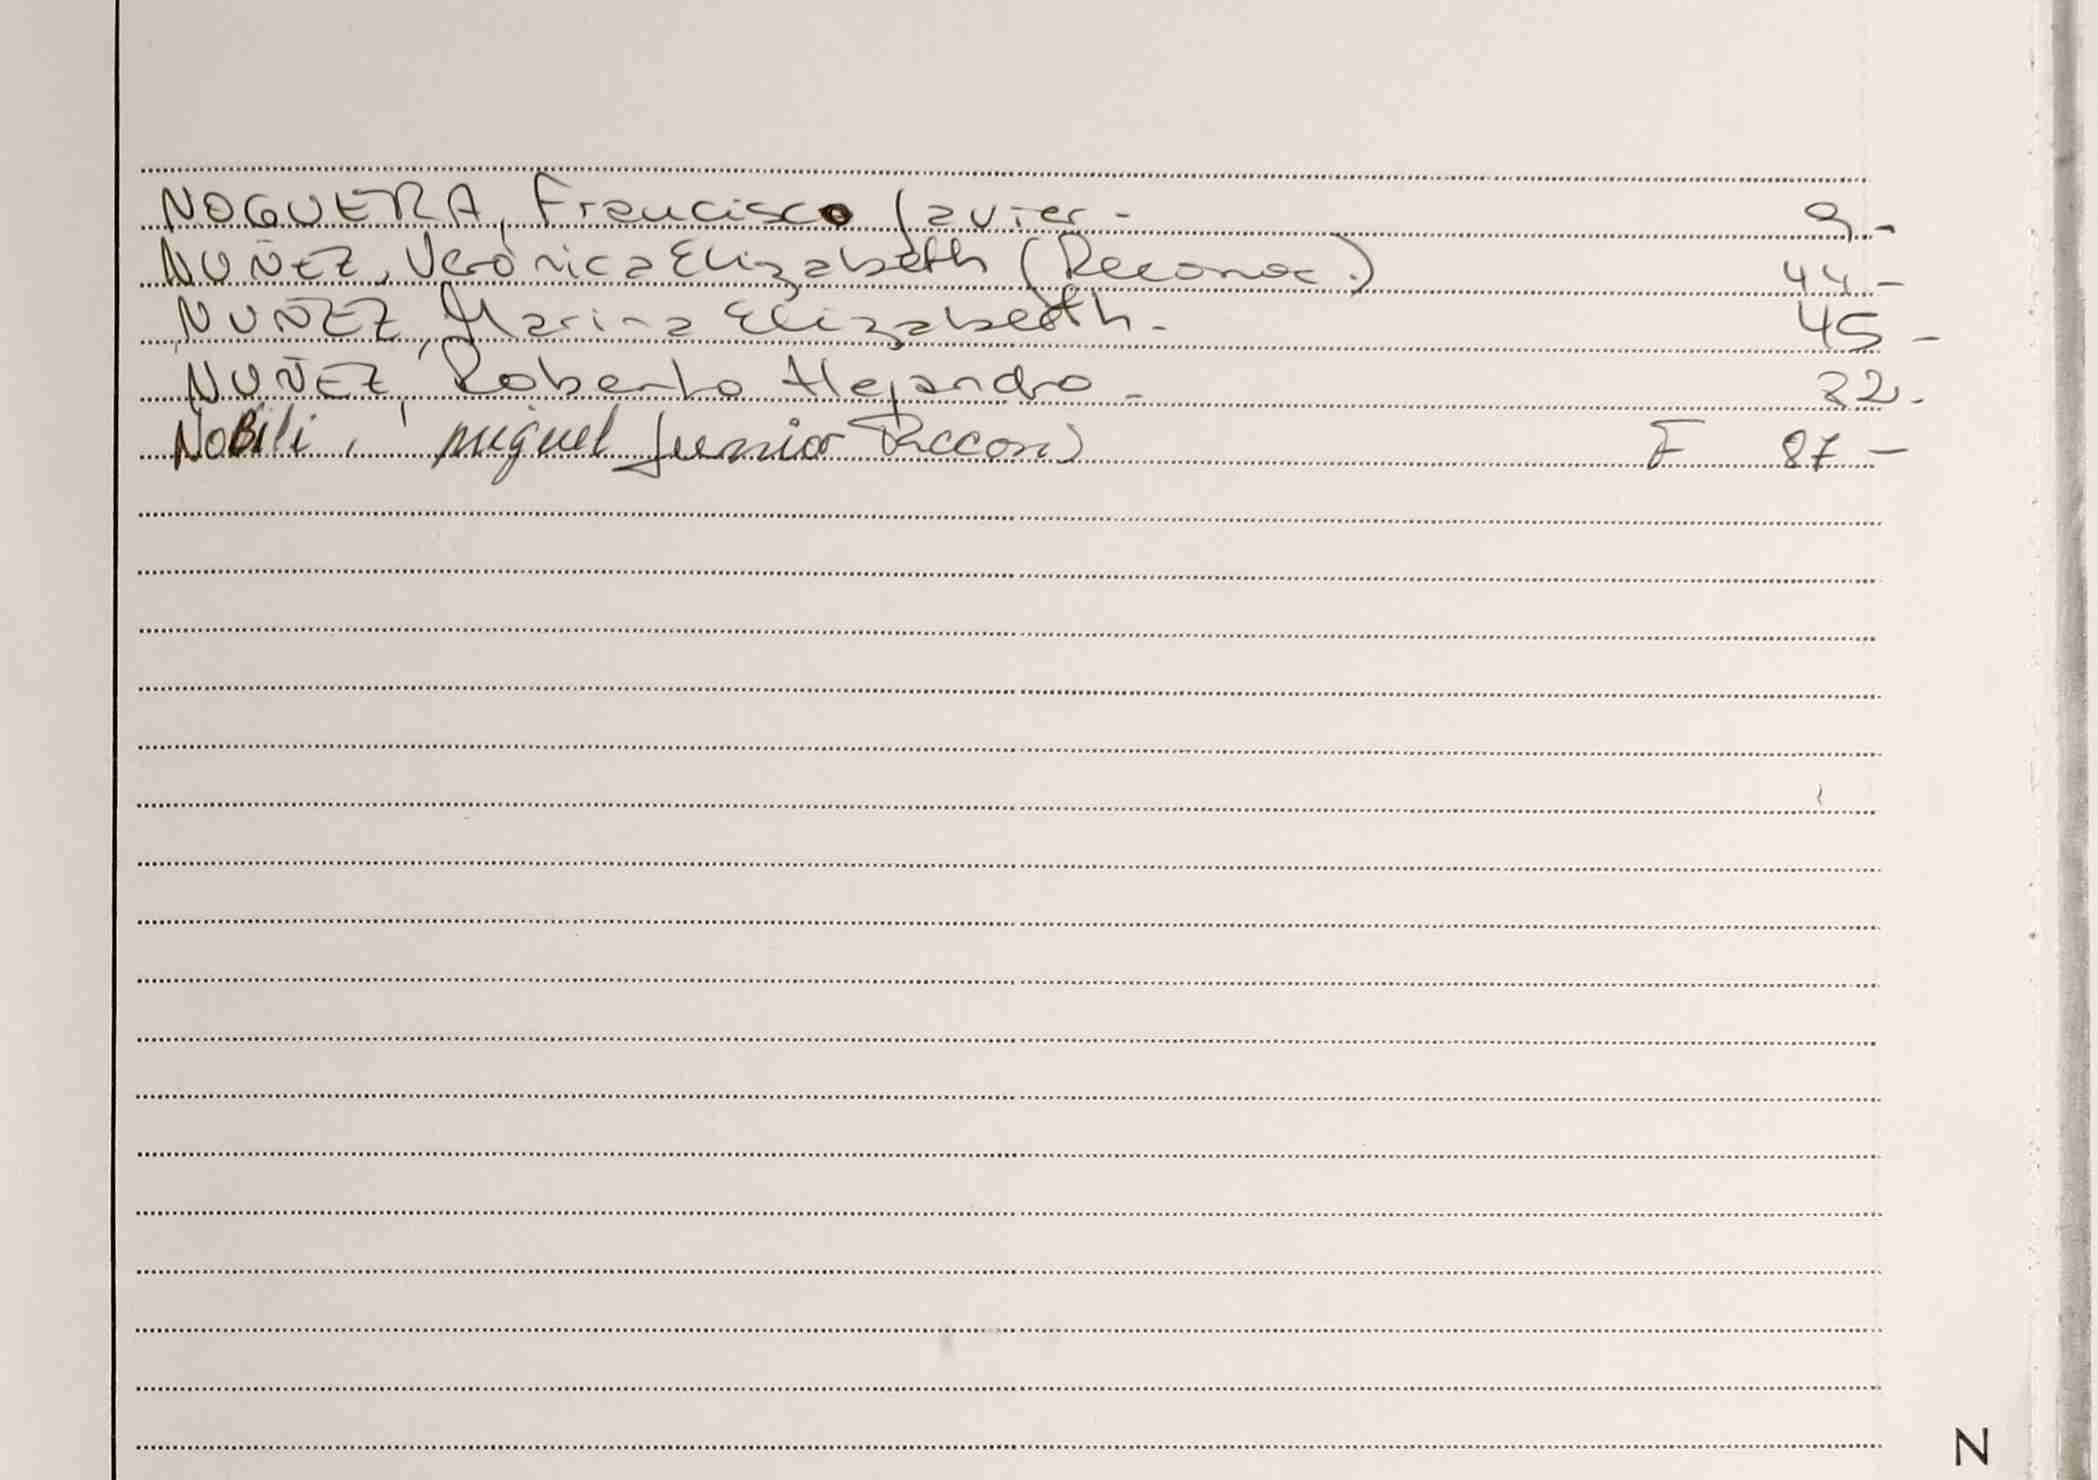 NOGUERA, Francisco Javier - 9 -
NUÑEZ, Verónica Elizabeth (Reconoc.) 44 -
NUÑEZ, Marina Elizabeth. - 45 -
NUÑEZ, Roberto Alejandro - 72 -
NoBili, Miguel Junior F 87 -
N